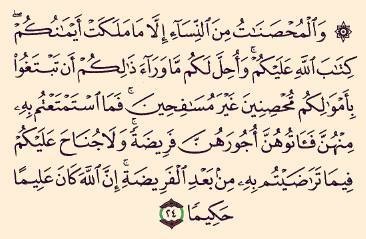 ۞ وَٱلۡمُحۡصَنَٰتُ مِنَ ٱلنِّسَآءِ إِلَّا مَا مَلَكَتۡ أَيۡمَٰنُكُمۡۖ
كِتَٰبَ ٱللَّهِ عَلَيۡكُمۡۚ وَأُحِلَّ لَكُم مَّا وَرَآءَ ذَٰلِكُمۡ أَن تَبۡتَغُواْ
بِأَمۡوَٰلِكُم مُّحۡصِنِينَ غَيۡرَ مُسَٰفِحِينَۚ فَمَا ٱسۡتَمۡتَعۡتُم بِهِۦ
مِنۡهُنَّ فَـَٔاتُوهُنَّ أُجُورَهُنَّ فَرِيضَةٗۚ وَلَا جُنَاحَ عَلَيۡكُمۡ
فِيمَا تَرَٰضَيۡتُم بِهِۦ مِنۢ بَعۡدِ ٱلۡفَرِيضَةِۚ إِنَّ ٱللَّهَ كَانَ عَلِيمًا
حَكِيمٗا ٢٤